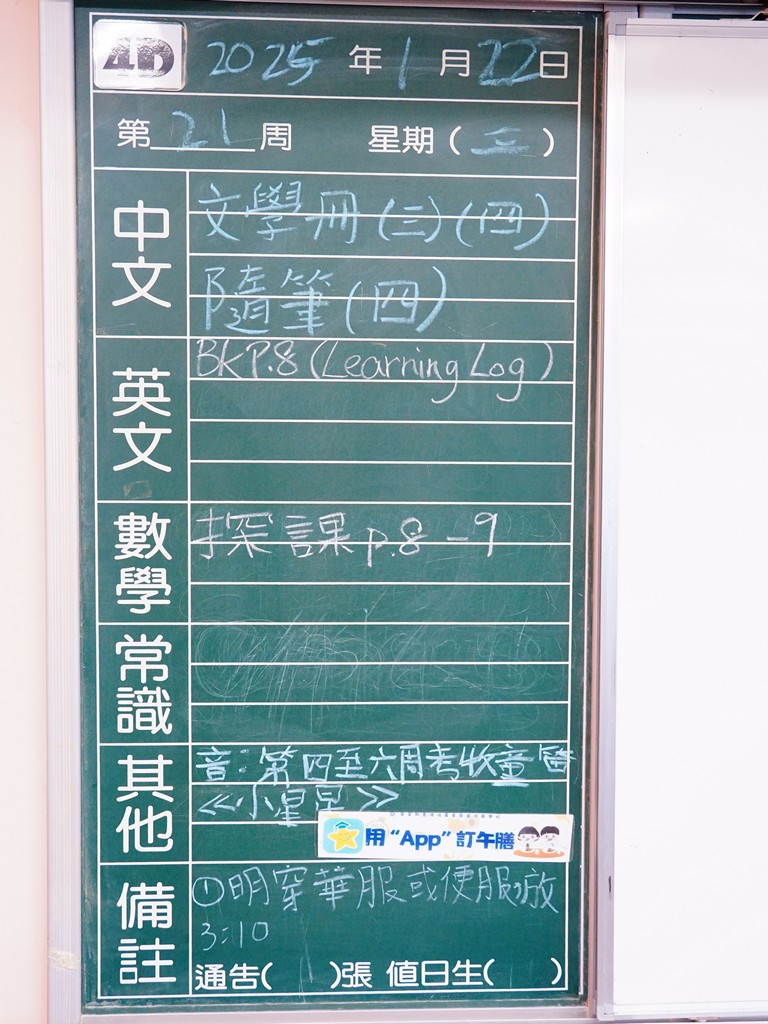 4D 2025年1月22日
第21周 星期(三)
中文
文學冊(三)(四)
隨筆(四)
英文
BKP.8 (Learning Log)
數學
探課p.8-9
常識
其他
音:第四至六周考牧童笛
《小星星》
用“App”訂午膳
備註
①明穿華服或便服,放
3:10
通告( )張 值日生( )